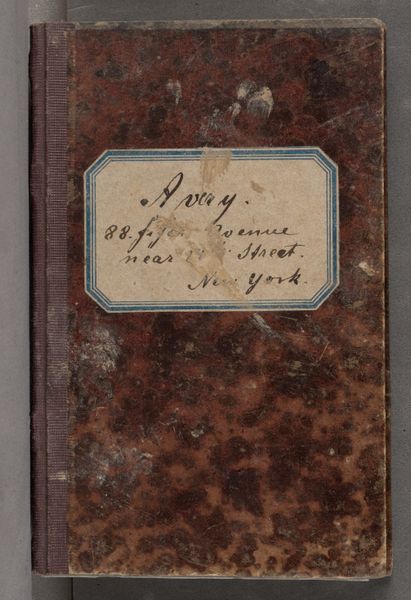 Avery.
88. fifth Avenue
near Street.
New York.